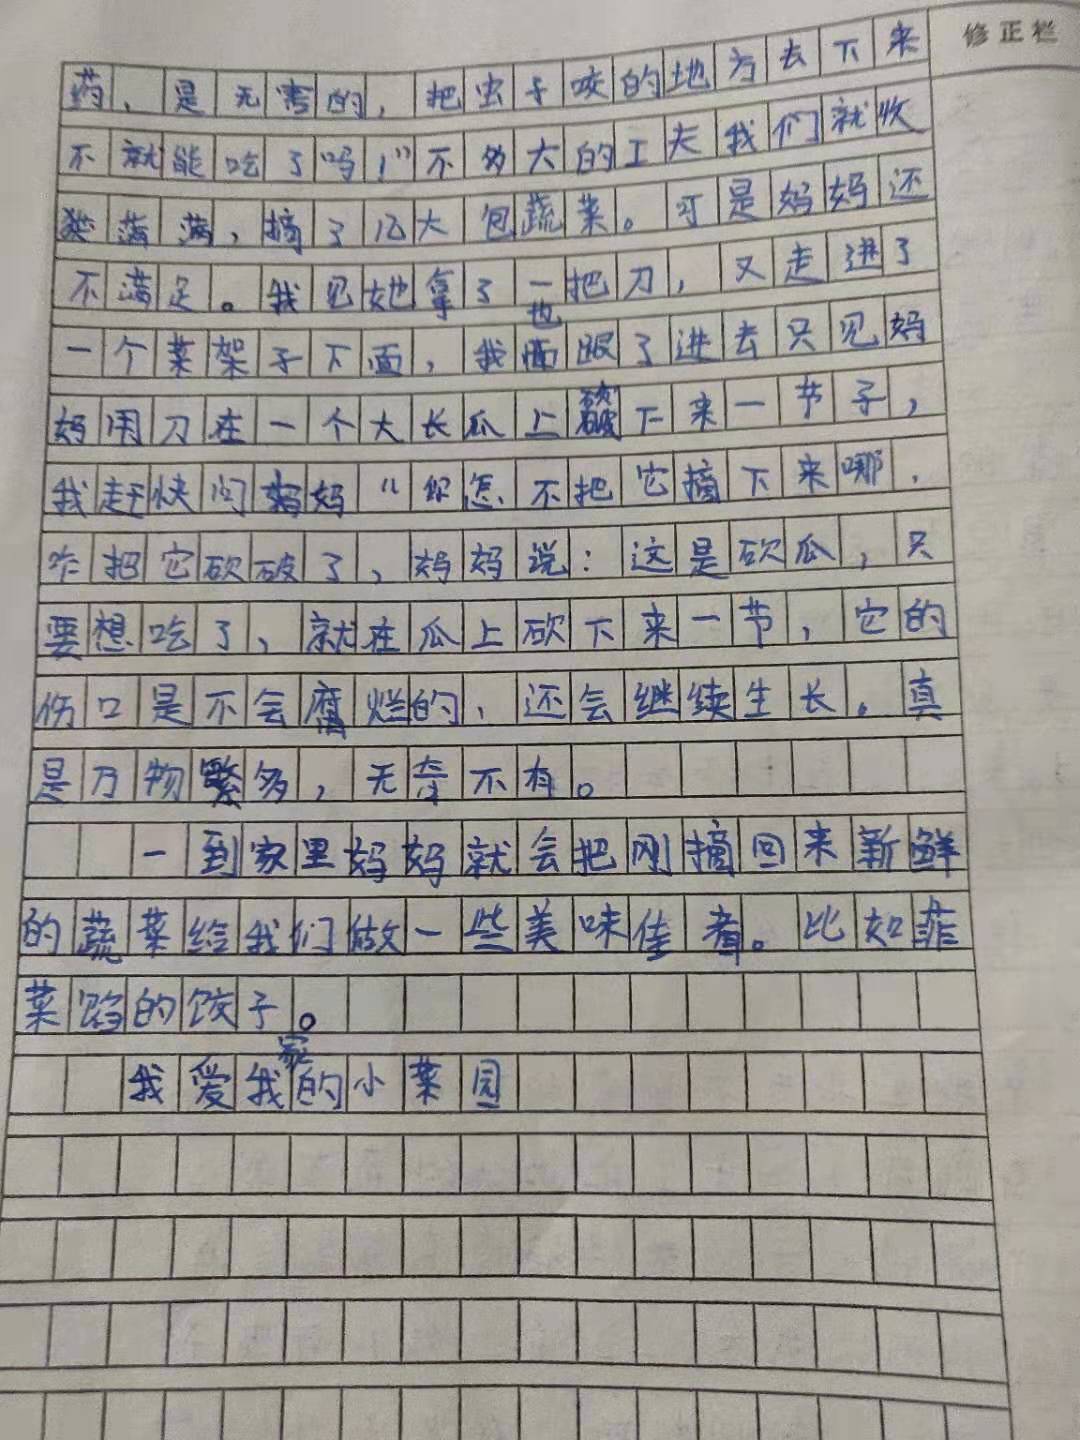 修正栏
药、是无害的，把虫子咬的地方去下来
不就能吃了吗！”不多大的工夫我们就收
获满满，摘了几大包蔬菜。可是妈妈还
不满足。我见她拿了一把刀，又走进了
一个菜架子下面，我也跟了进去只见妈
妈用刀在一个大长瓜上砍下来一节子，
我赶快问妈妈“你怎不把它摘下来哪，
咋把它砍破了，妈妈说：这是砍瓜，只
要想吃了，就在瓜上砍下来一节，它的
伤口是不会腐烂的，还会继续生长。真
是万物繁多，无奇不有。
一到家里妈妈就会把刚摘回来新鲜
的蔬菜给我们做一些美味佳肴。比如韭
菜馅的饺子。
我爱我家的小菜园